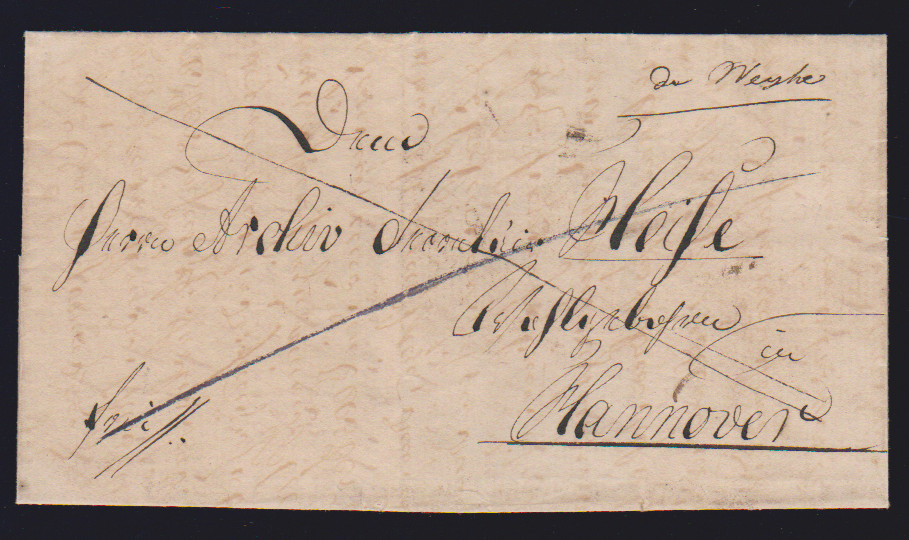 de Weyhe
Dem
Herrn Archiv Secretair Heise
Wohlgebohren
in
Hannover
frei